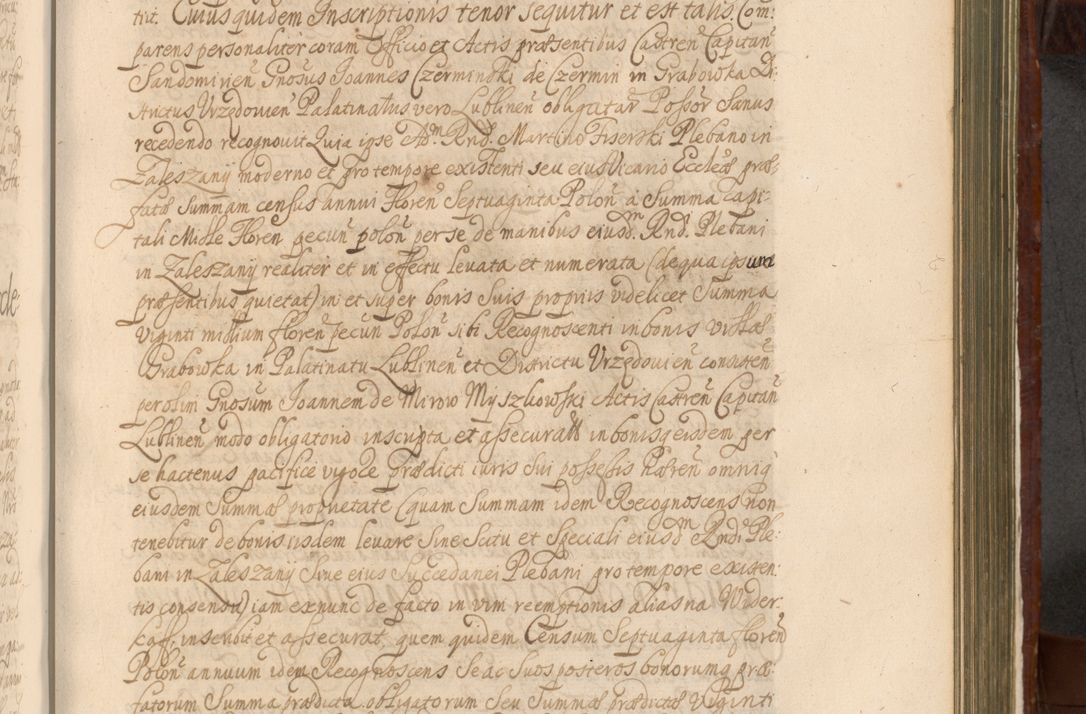 tut. Cuius quidem Inscriptionis tenor sequitur et est talis. Com:
parens personaliter coram Officio et Actis præsentibus Castren̄ Capitan̄
Sandomirien̄ Gn̄osus Ioannes Czerminski de Czermin in Grabowka Di:
strictus Urzędowien̄ Palatinatus vero Lublinen̄ obligatar̄ Possor̄ Sanus
recedendo recognovit Quia ipse Ad.m Rnd. Martino Fiserski Plebano in
Zaleszany moderno et pro tempore existenti seu eius Vicario Eccleæ præ:
fatæ Summam census annui Floren̄ Septuaginta Polon̄ à Summa capi:
tali Mille Floren̄ pecun̄ polon̄ per se de manibus eiusd.m Rnd. Plebani
in Zaleszany realiter et in effectu levata et numerata (de qua ipsum
præsentibus quietat) in et super bonis Suis propriis videlicet Summa
Viginti millium floren̄ pecun̄ Polon̄ sibi Recognoscenti in bonis villæ
Grabowka in Palatinatu Lublinen̄ et Districtu Urzędowien̄ consisten̄
per olim Gn̄osum Ioannem de Mirow Myszkowski Actis Castren̄ Capitan̄
Lublinen̄ modo obligatorio inscripta et assecurata in bonisq eisdem per
se hactenus pacifice vigoe prædicti iuris sui possessis hæren̄ omniq
eiusdem Summæ proprietate (quam Summam idem Recognoscens non
tenebitur de bonis iisdem levare Sine Scitu et Speciali eiusd.m Rndi Ple:
bani in Zaleszany Sive eius Succedanei Plebani pro tempore existen:
tis consensu) iam ex nunc de facto in vim reemptionis alias na Wider:
kaff. inscribit et assecurat, quem quidem Censum Septuaginta floren̄
Polon̄ annuum idem Recognoscens Se ac Suos posteros bonorumq præ:
fatorum Summa prædicta obligatorum Seu Summæ prædictæ Viginti